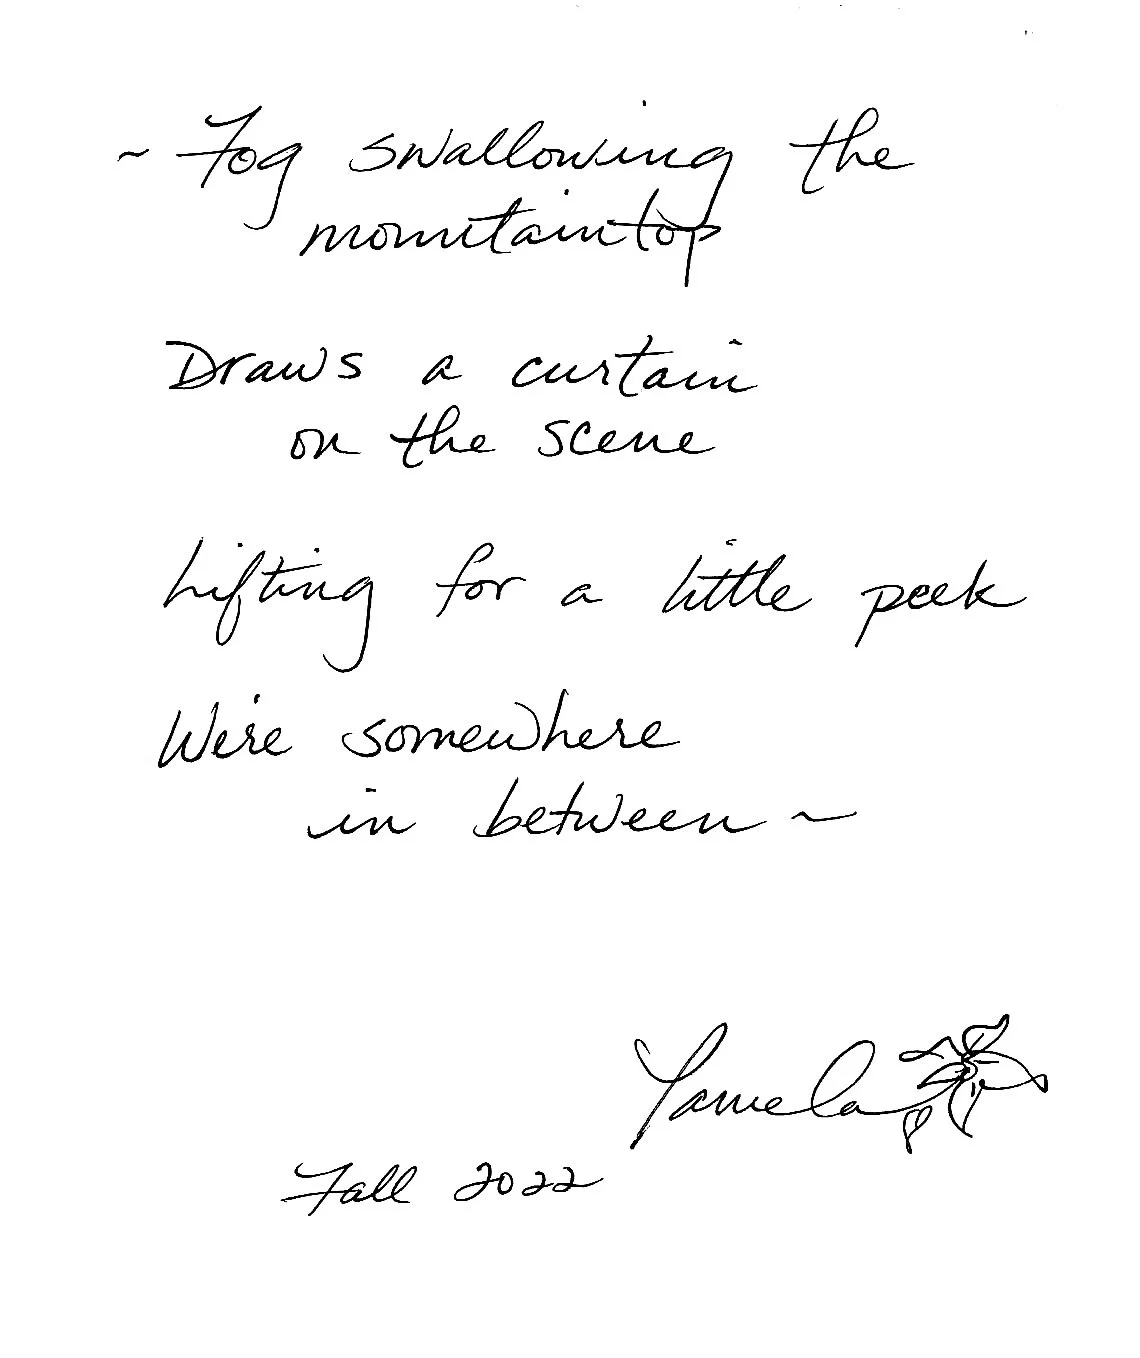 ~ Fog swallowing the
mountaintop
Draws a curtain
on the scene
Lifting for a little peek
We're somewhere
in between ~
Pamela
Fall 2022